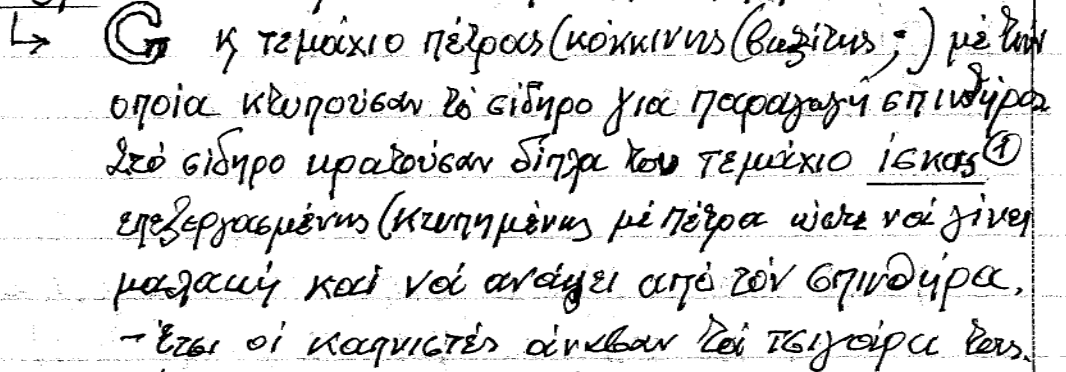 ↳ G κ τεμάχιο πέτρας (κόκκινης (βωξίτης;) μέ τήν
οποία κτυπούσαν τό σίδηρο για παραγωγή σπινθήρα
Στό σίδηρο κρατούσαν δίπλα του τεμάχιο ίσκας ①
επεξεργασμένης (κτυπημένης μέ πέτρα ώστε νά γίνει
μαλακή καί νά ανάψει από τόν σπινθήρα.
- έτσι οί καπνιστές άναβαν τά τσιγάρα τους.